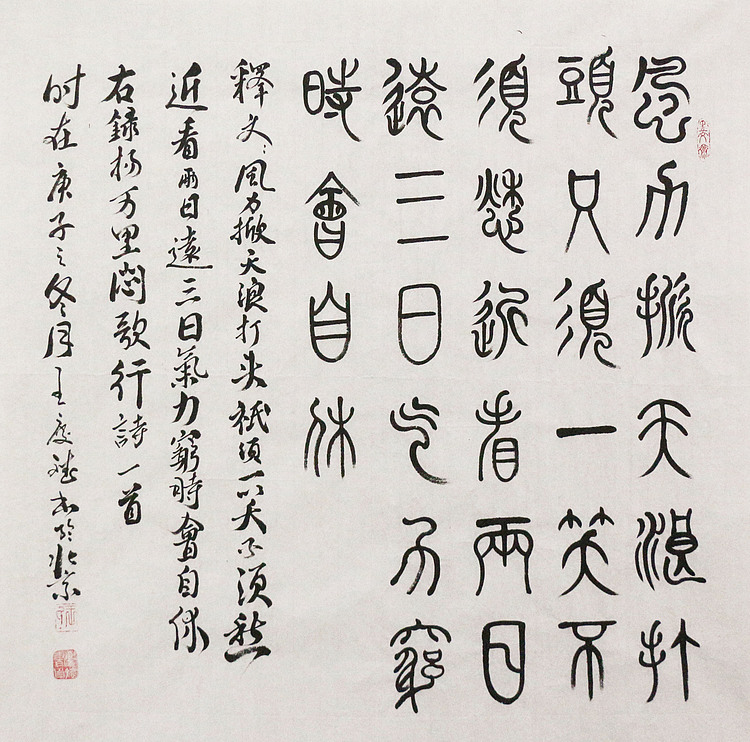 風力掀天浪打
頭只須一笑不
須愁近看兩日
遠三日气力窮
時會自休
釋文:風力掀天浪打头祇須一笑不須愁
近看兩日遠三日氣力窮時會自休
右録杨万里悶歌行詩一首
时在庚子之冬月王慶书於北京